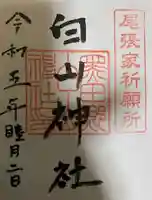 尾張家祈願所
白山神社
令和五年睦月二日